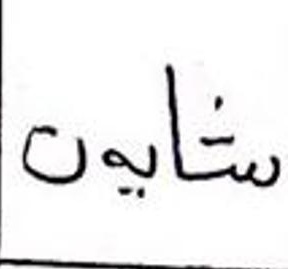 شايون